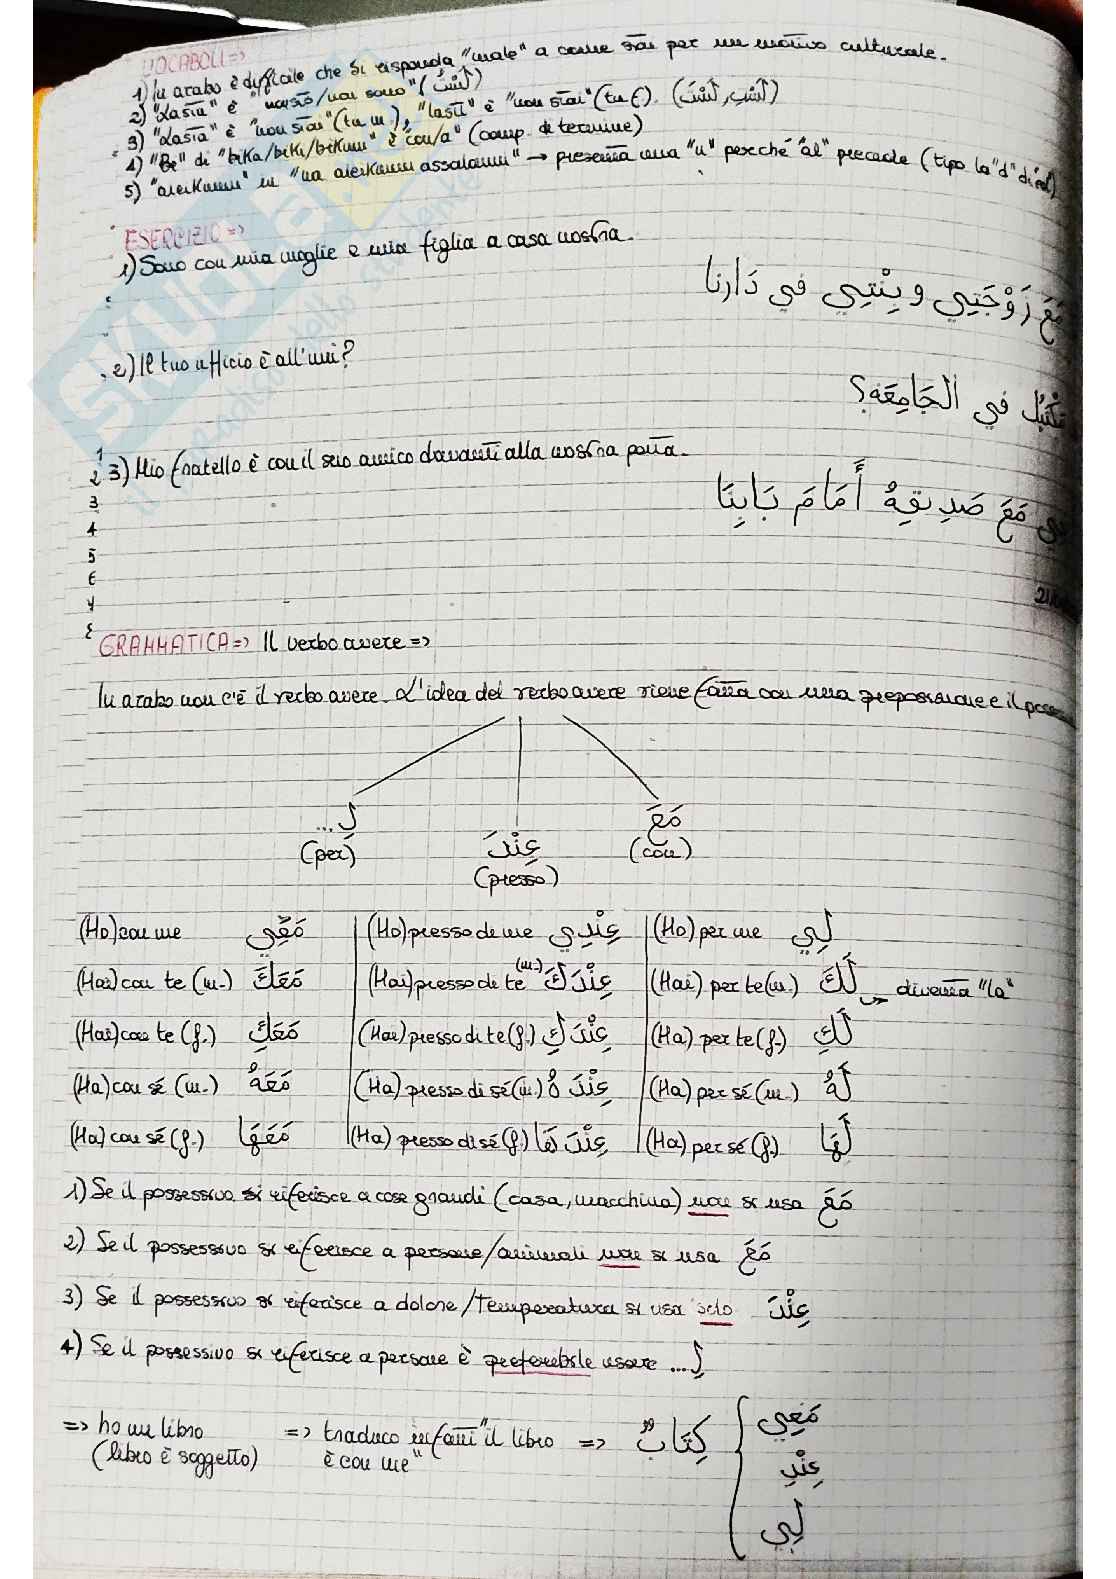 VOCABOLI =>
1) In arabo è difficile che si risponda "male" a come stai per un motivo culturale.
2) "Lastu" è "non sto/non sono" (لَسْتُ)
3) "Lasta" è "non stai" (tu m.), "lasti" è "non stai" (tu f). (لَسْتِ, لَسْتَ)
4) "Bi" di "bika/biki/bikum" è "con/a" (comp. di termine)
5) "aleikumu" in "ua aleikumu assalamu" → presenta una "u" perché "al" precede (tipo la "d" di
ESERCIZIO =>
1) Sono con mia moglie e mia figlia a casa nostra.
مَعَ زَوْجَتِي و بِنْتِي في دَارنا
2) Il tuo ufficio è all'uni?
في الجَامِعَه؟
3) Mio fratello è con il suo amico davanti alla nostra porta.
مَعَ صَدِيقِهُ أَمَامَ بَابِنَا
1
2
3
4
5
6
7
8
GRAMMATICA => Il verbo avere =>
In arabo non c'è il verbo avere. L'idea del verbo avere viene fatta con una preposizione e il
لِ...
(per)
عِنْدَ
(presso)
مَعَ
(con)
(Ho) con me مَعِي (Ho) presso di me عِنْدِي (Ho) per me لِي
(Hai) con te (m.) مَعَكَ (Hai) presso di te (m.) عِنْدَكَ (Hai) per te (m.) لَكَ → diventa "la"
(Hai) con te (f.) مَعَكِ (Hai) presso di te (f.) عِنْدَكِ (Ha) per te (f.) لَكِ
(Ha) con sé (m.) مَعَهُ (Ha) presso di sé (m.) عِنْدَ هُ (Ha) per sé (m.) لَهُ
(Ha) con sé (f.) مَعَهَا (Ha) presso di sé (f.) عِنْدَ هَا (Ha) per sé (f.) لَهَا
1) Se il possessivo si riferisce a cose grandi (casa, macchina) non si usa مَعَ
2) Se il possessivo si riferisce a persone/animali non si usa مَعَ
3) Se il possessivo si riferisce a dolore/temperatura si usa solo عِنْدَ
4) Se il possessivo si riferisce a persone è preferibile usare ...لِ
=> ho un libro => traduco infatti "il libro => كِتَابٌ مَعِي
(libro è soggetto) è con me" عِنْدِ
لِي